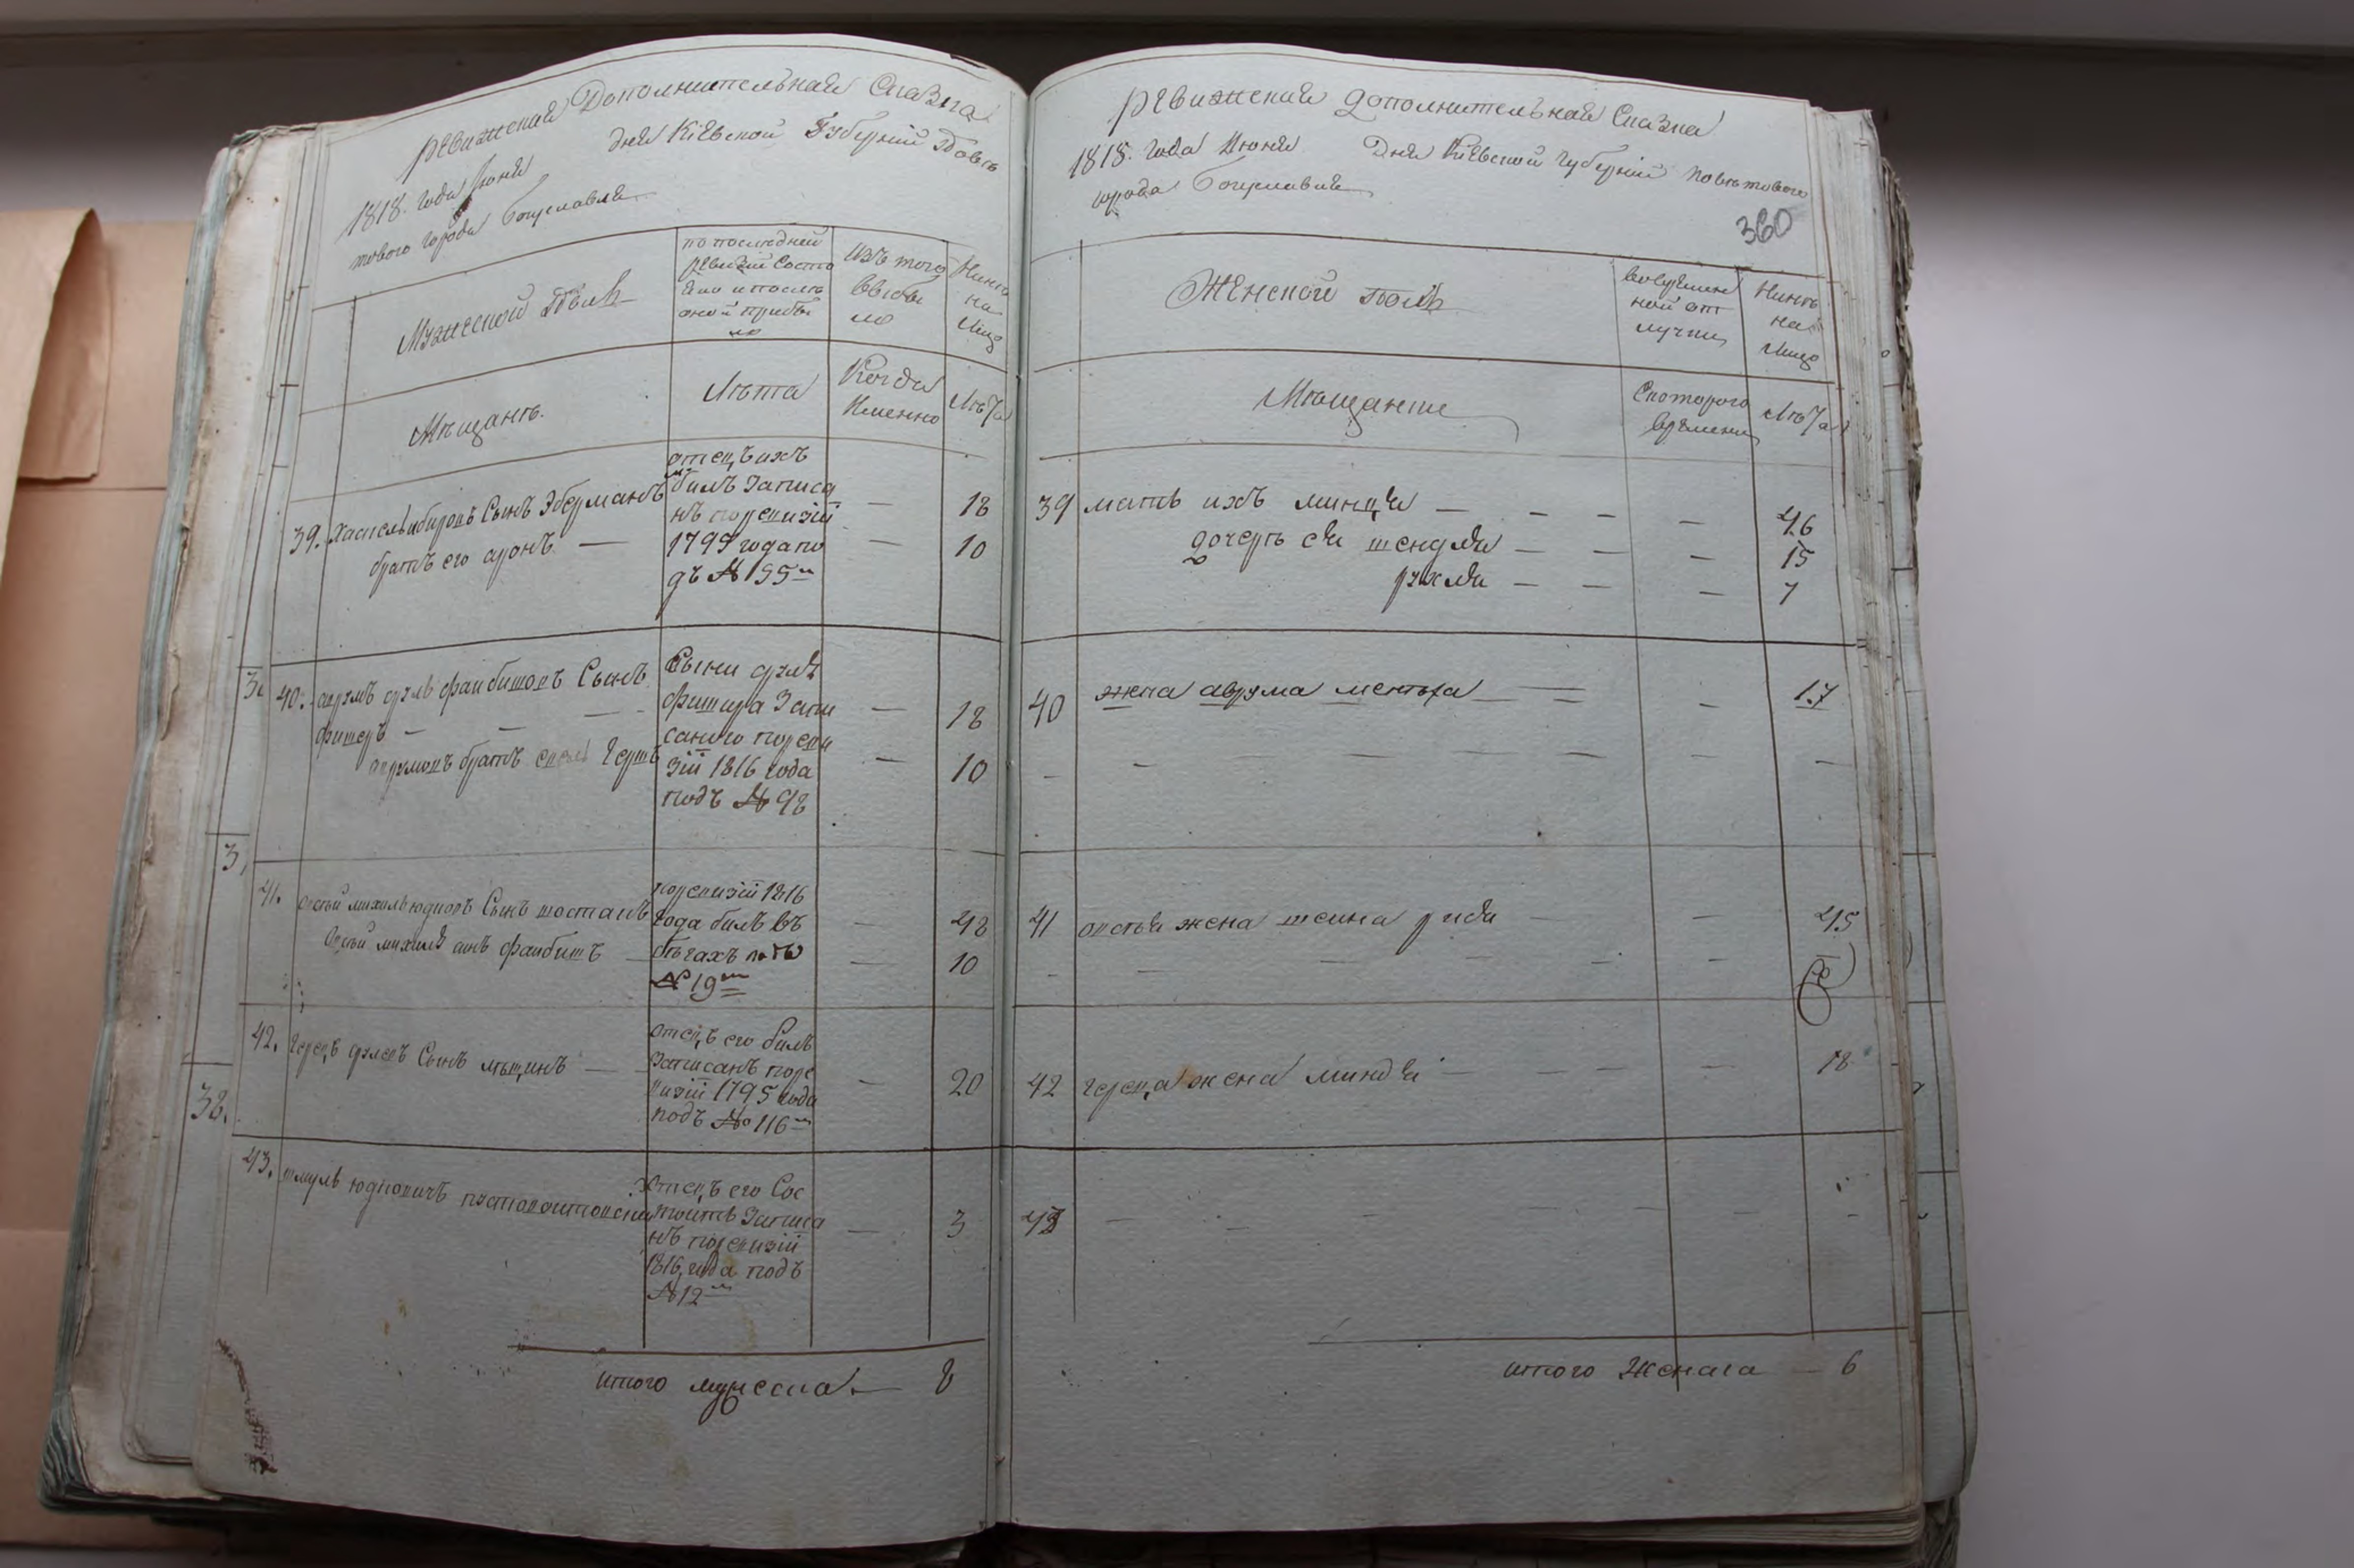 ревижская Дополнительная Сказка
1818. года Июня дня Кіевской Губерніи Повѣ
тового города Богуславля
Мужеской Полъ
по последней
ревизіи Состо
яло и послѣ
оной прибы
ло
Изъ того
выбы
ло
Нинѣ
на
лицо
Мѣщанъ.
Лѣта
Когда
Именно
Лѣта
39. Хаскель Сынъ Эберманъ
братъ его аронъ —
отецъ ихъ
билъ Записа
нъ поревизіи
1795 года по
дъ № 155
— 18
— 10
40. аврумъ сруль файбишовъ Сынъ
фишеръ — —
аврумовъ братъ
Сыни сруля
фишера Запи
саного вореви
зіи 1816 года
подъ № 98
— 18
— 10
41. овсѣй михель юдковъ Сынъ шостакъ
Овсѣй михеля синъ файбишъ
поревизіи 1816
года билъ въ
бѣгахъ подъ
№ 19
— 48
— 10
42. герецъ дувидъ Сынъ —
отецъ его билъ
Записанъ поре
визіи 1795 года
подъ № 116
— 20
43. шмуль юдковичъ
Отецъ его Сос
тоитъ Записа
нъ поревизіи
1816 года подъ
№ 12
— 3
итого мужеска — 8
3
38.
ревижская дополнительная Сказка
1818. года Июня Дня Кіевской Губерніи Повѣтового
города Богуславля
360
Женской Полъ
вовремен
ной от
лучки
Нинѣ
на
лицо
Мѣщанки
Скоторого
времени
Лѣта
39 мать ихъ минця — — — — 46
дочерь ея шендля — — — 15
рухля — — — 7
40 жена аврума — — 17
41 овсѣя жена шейна рися — — 45
42 герецa жена миндя — — — — 18
43 — — — — — —
итого Женска — 6